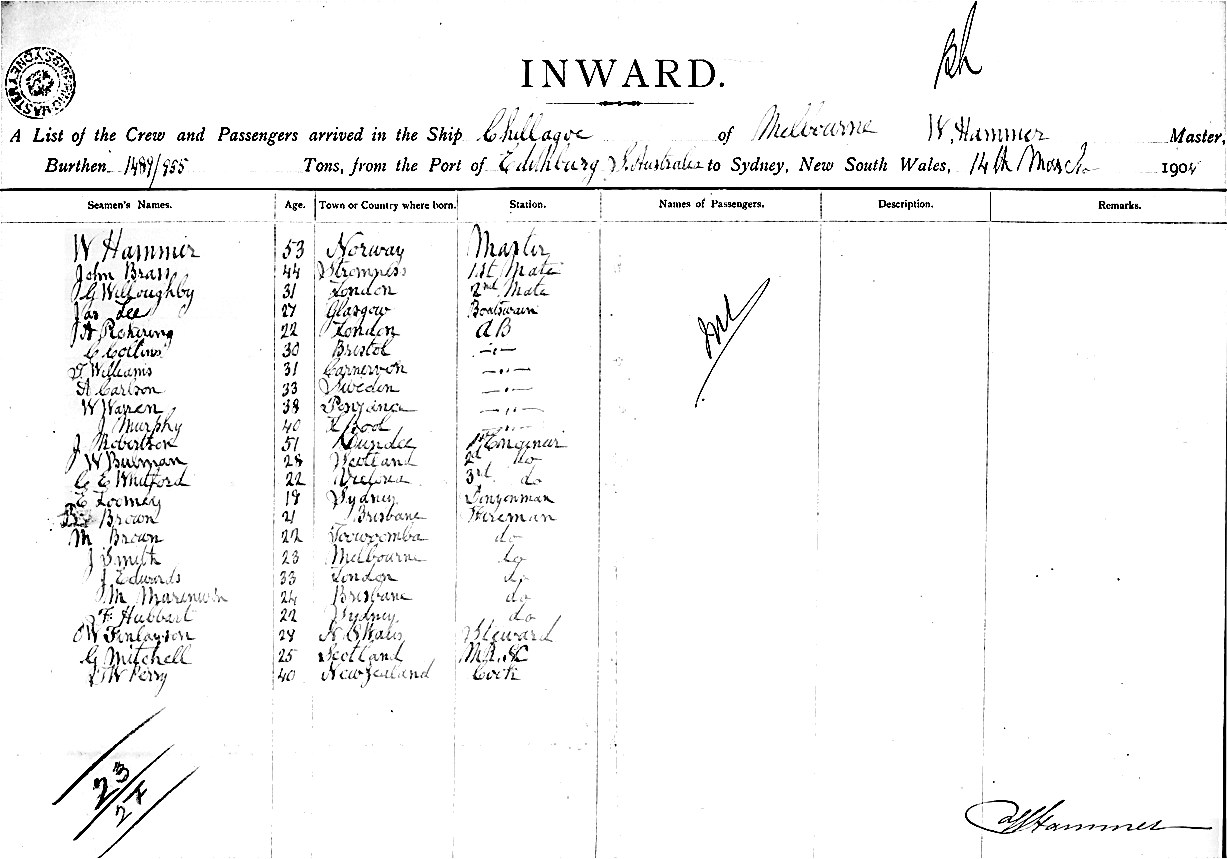 SHIPPING MASTER SYDNEY
Bh
INWARD.
A List of the Crew and Passengers arrived in the Ship Chillagoe of Melbourne W. Hammer Master,
Burthen 1489/955 Tons, from the Port of Edithburg S. Australia to Sydney, New South Wales, 14th March 190
Seamen's Names. Age. Town or Country where born. Station. Names of Passengers. Description. Remarks.
W Hammer 53 Norway Master
John Brass 44 Stromness 1st Mate
J G Willoughby 31 London 2nd Mate
Jas Lee 27 Glasgow Boatswain
J A Pickering 22 London AB
C Collins 30 Bristol —"—
T Williams 31 Carnervon —"—
A Carlson 33 Sweden —"—
W Warren 38 Penzance —"—
J Murphy 40 L'Pool —"—
J Robertson 51 Dundee 1st Engineer
J W Bulman 28 Scotland 2d do
C E Whitford 22 Victoria 3rd do
E Toomey 18 Sydney
Brown 21 Brisbane Fireman
M Brown 22 Toowoomba do
J Smith 23 Melbourne do
J Edwards 33 London do
J M 24 Brisbane do
F Hubbart 22 Sydney do
W Finlayson 28 N S Wales Steward
G Mitchell 25 Scotland
W Perry 40 New Zealand Cook
Nil
23/27
W Hammer